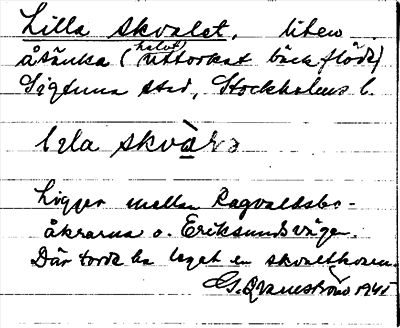 Lilla skvalet, liten
åsänka (halvt uttorkat bäckflöde)
Sigtuna stad, Stockholms l.
lɩla skvàlə
Ligger mellan Ragvaldsbo-
åkrarna o. Eriksundsvägen.
Där torde ha legat en skvaltkvarn.
G. Qvarnström 1945